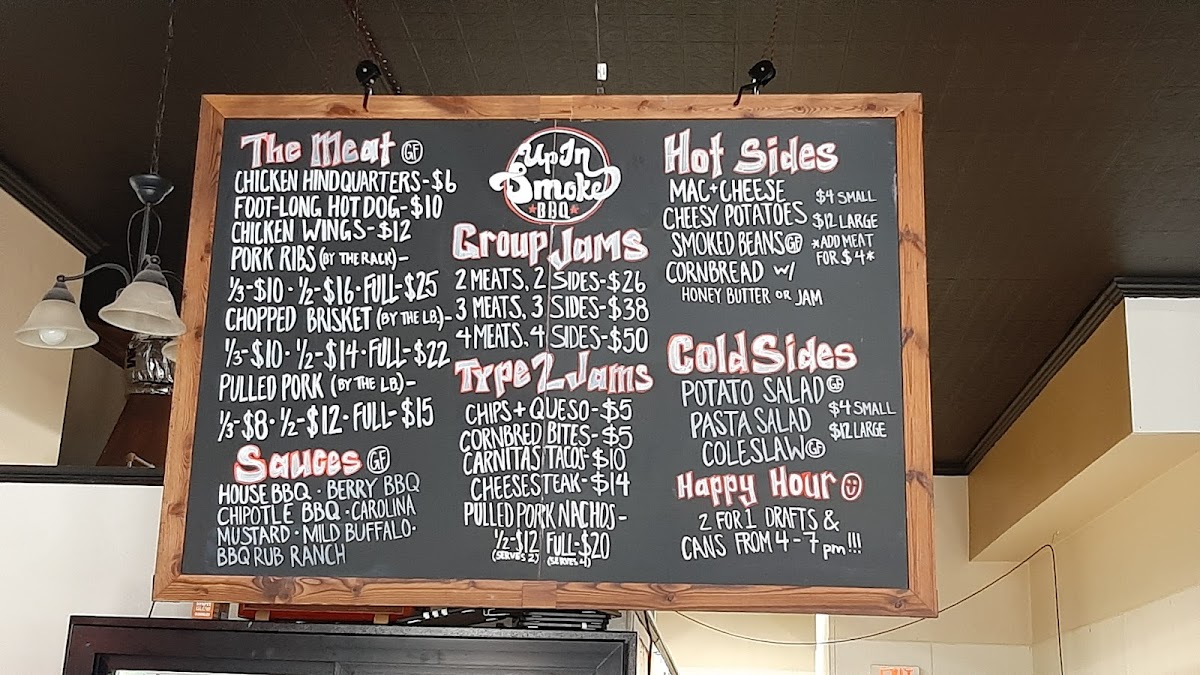 The Meat GF
CHICKEN HINDQUARTERS-$6
FOOT-LONG HOT DOG-$10
CHICKEN WINGS-$12
PORK RIBS (BY THE RACK)-
1/3-$10 · 1/2-$16 · FULL-$25
CHOPPED BRISKET (BY THE LB.)-
1/3-$10 · 1/2-$14 · FULL-$22
PULLED PORK (BY THE LB.)-
1/3-$8 · 1/2-$12 · FULL-$15
Sauces GF
HOUSE BBQ · BERRY BBQ
CHIPOTLE BBQ · CAROLINA
MUSTARD · MILD BUFFALO ·
BBQ RUB RANCH
Up In
Smoke
BBQ
Group Jams
2 MEATS, 2 SIDES-$26
3 MEATS, 3 SIDES-$38
4 MEATS, 4 SIDES-$50
Type 2 Jams
CHIPS + QUESO-$5
CORNBRED BITES-$5
CARNITAS TACOS-$10
CHEESESTEAK-$14
PULLED PORK NACHOS-
1/2-$12 FULL-$20
(SERVES 2) (SERVES 4)
Hot Sides
MAC+CHEESE
CHEESY POTATOES
SMOKED BEANS GF
CORNBREAD w/
HONEY BUTTER OR JAM
$4 SMALL
$12 LARGE
*ADD MEAT
FOR $4*
Cold Sides
POTATO SALAD GF
PASTA SALAD
COLESLAW GF
$4 SMALL
$12 LARGE
Happy Hour
2 FOR 1 DRAFTS &
CANS FROM 4-7 pm!!!